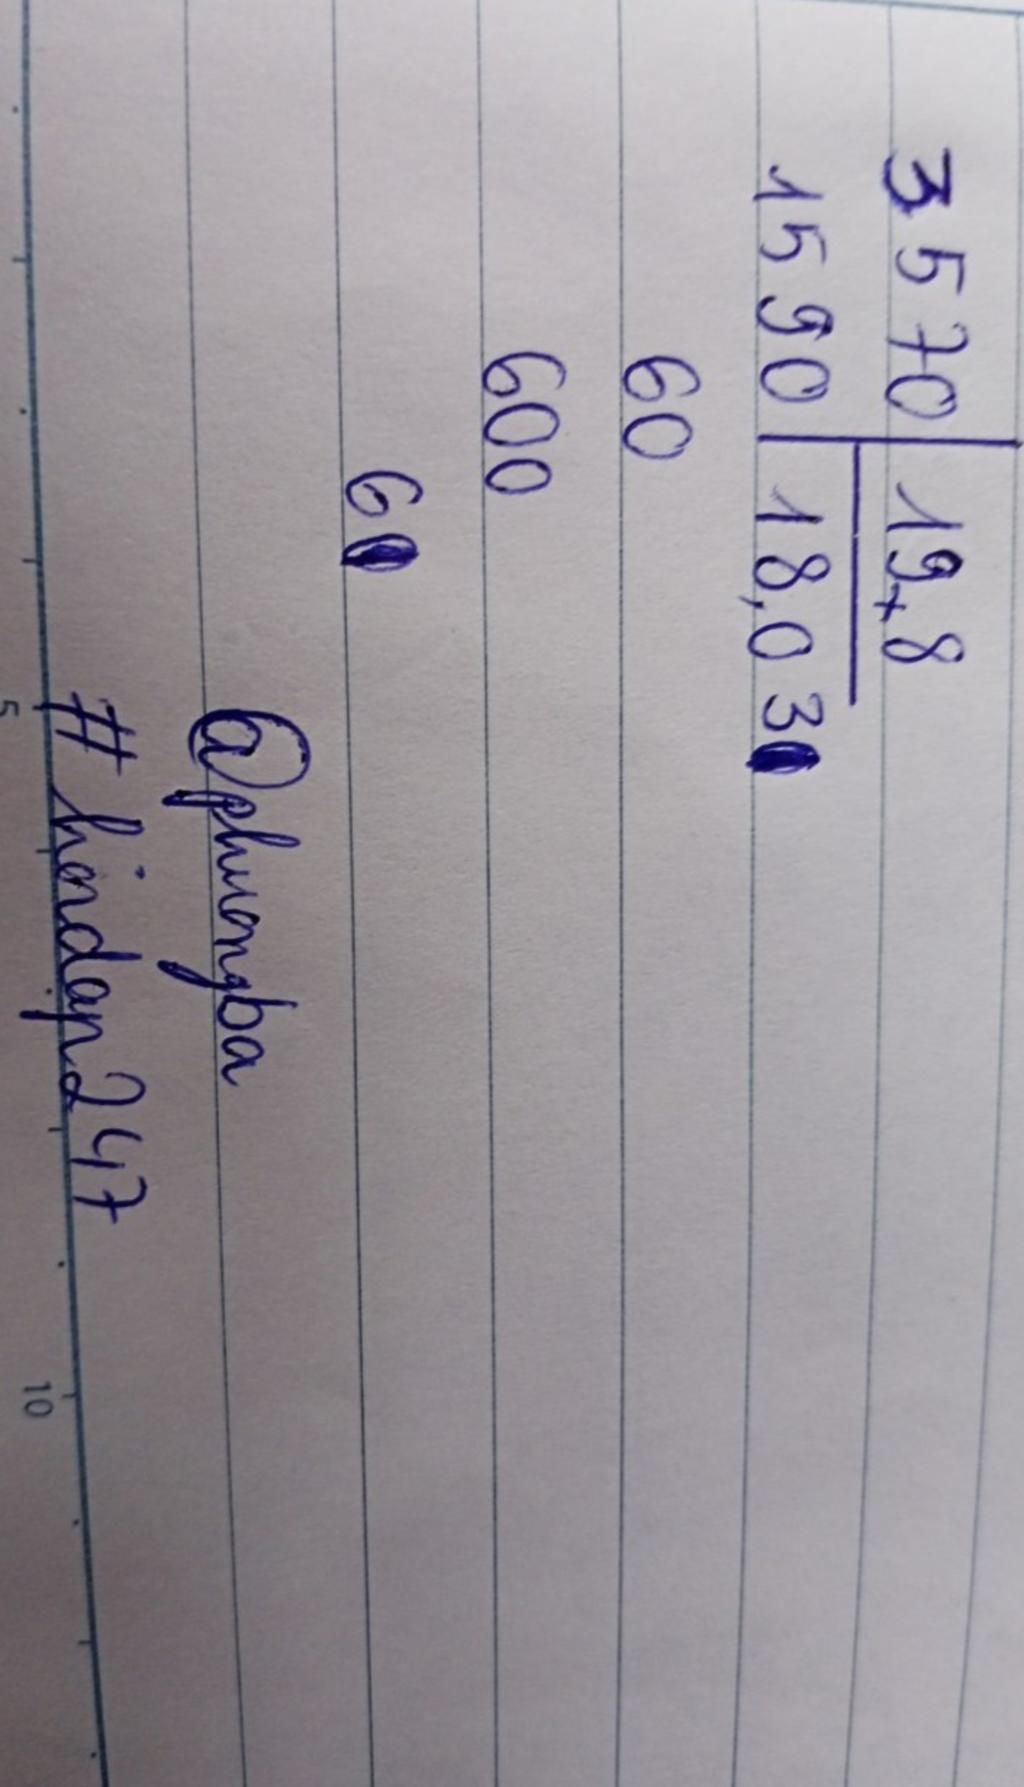 3570 | 19,8
1590 | 18,03
60
600
6
@phuongba
#hoidap247
5
10